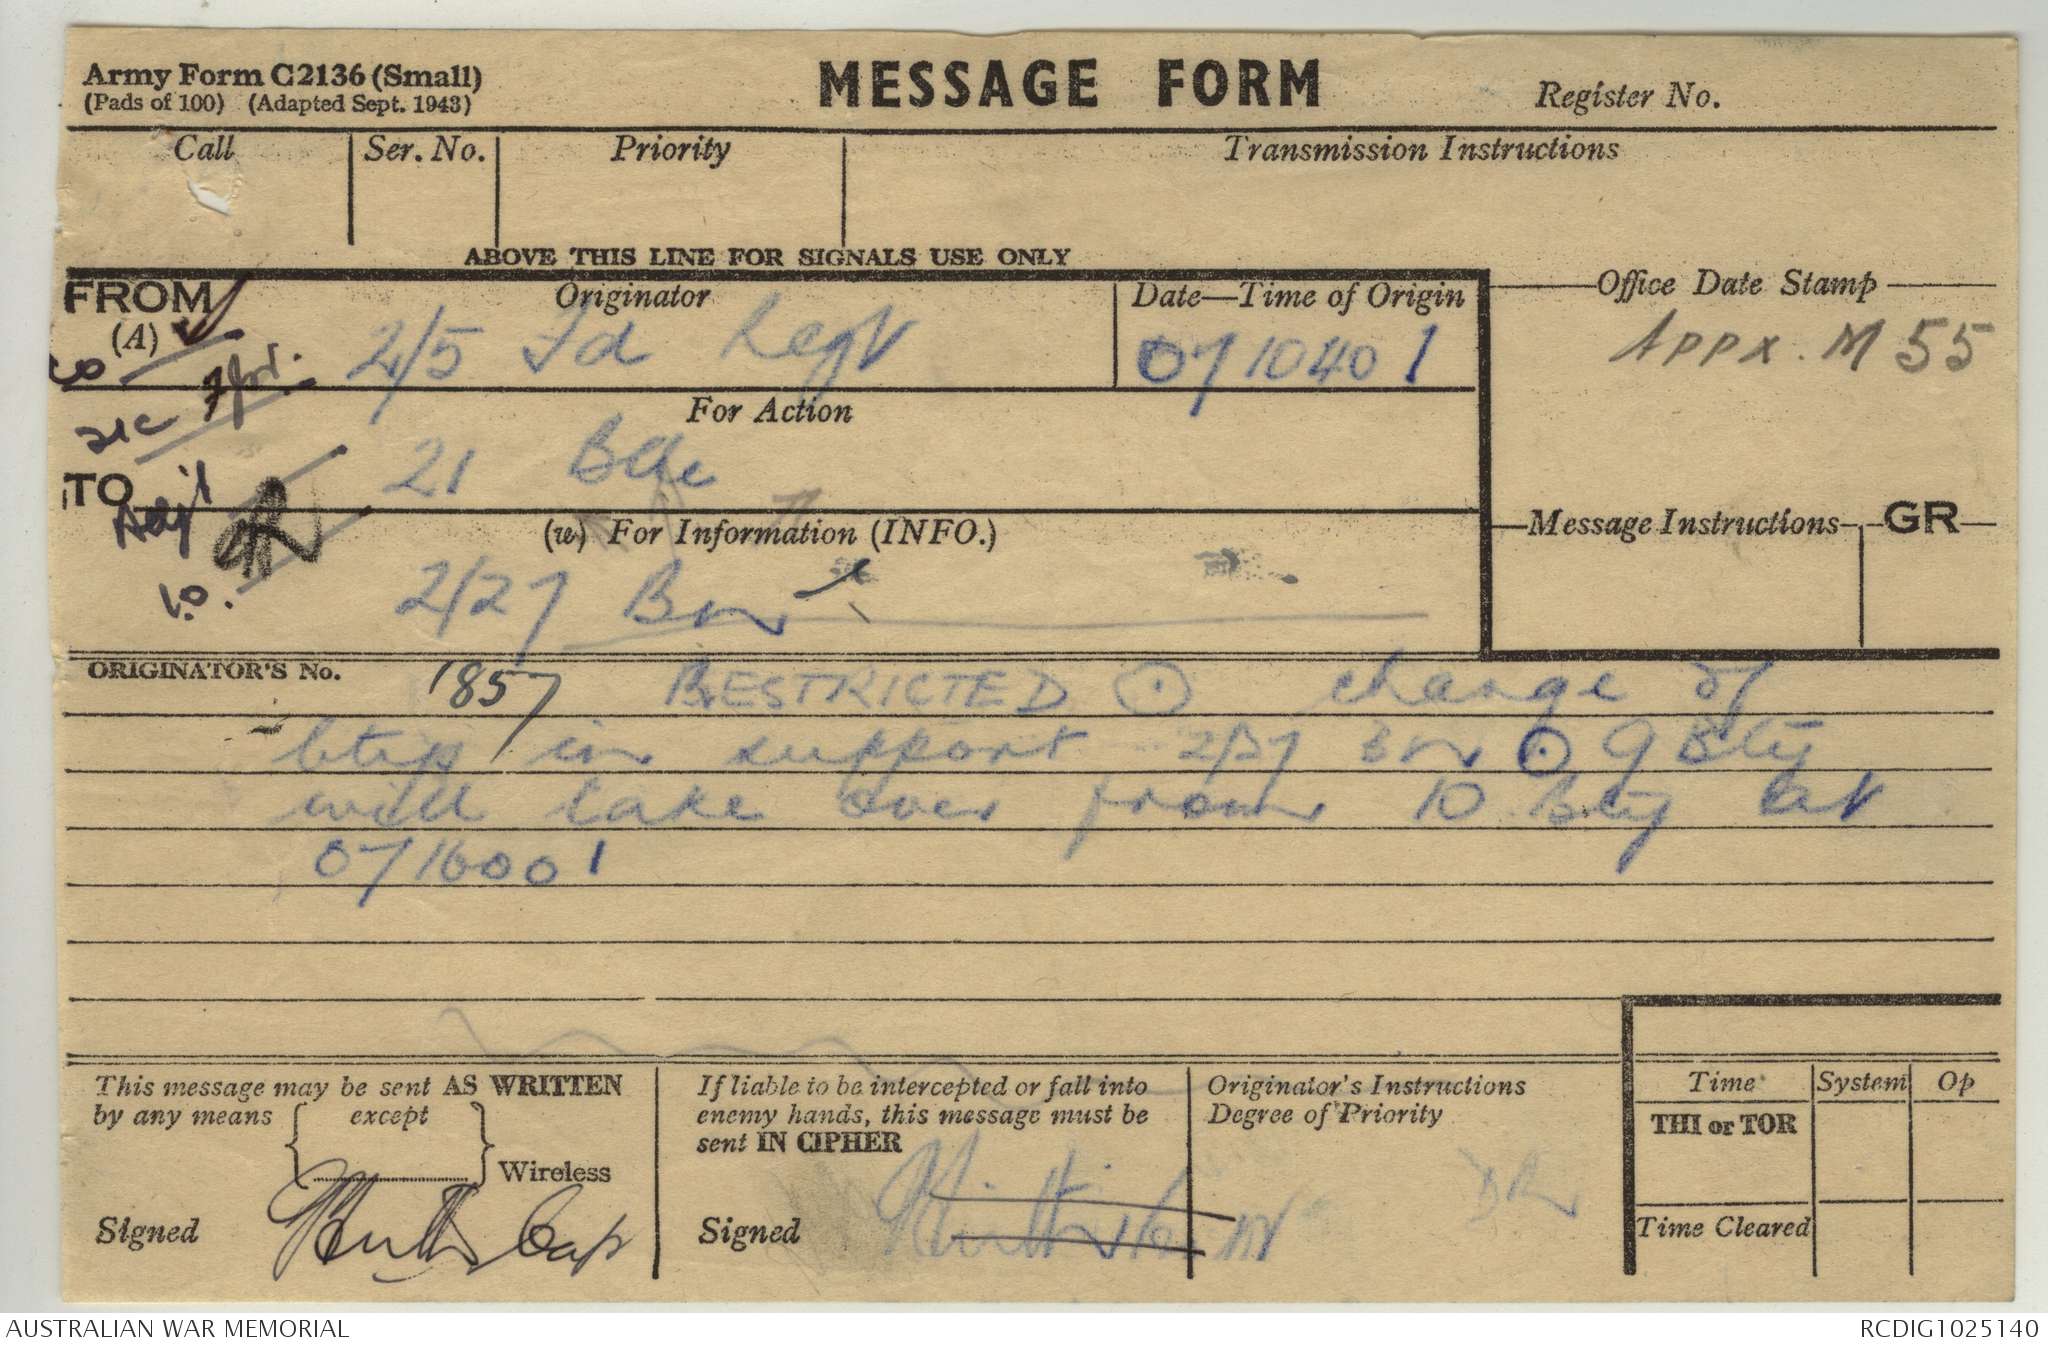 Army Form C2136 (Small)
(Pads of 100) (Adapted Sept. 1943)
MESSAGE FORM
Register No.
Call
Ser. No.
Priority
Transmission Instructions
ABOVE THIS LINE FOR SIGNALS USE ONLY
FROM
(A)
Originator
Date—Time of Origin
Office Date Stamp
2/5 Fd Regt
071040 I
Appx. M 55
For Action
TO
21 Bde
Adjt
I.O.
(w) For Information (INFO.)
Message Instructions
GR
2/27 Bn
ORIGINATOR'S No.
1857 RESTRICTED ⊙ change of
btys in support 2/27 Bn ⊙ 9 Bty
will take over from 10 Bty at
071600 I
This message may be sent AS WRITTEN
by any means { except
} Wireless
Signed
Capt
If liable to be intercepted or fall into
enemy hands, this message must be
sent IN CIPHER
Signed
Originator's Instructions
Degree of Priority
Time
System
Op
THI or TOR
Time Cleared
AUSTRALIAN WAR MEMORIAL
RCDIG1025140